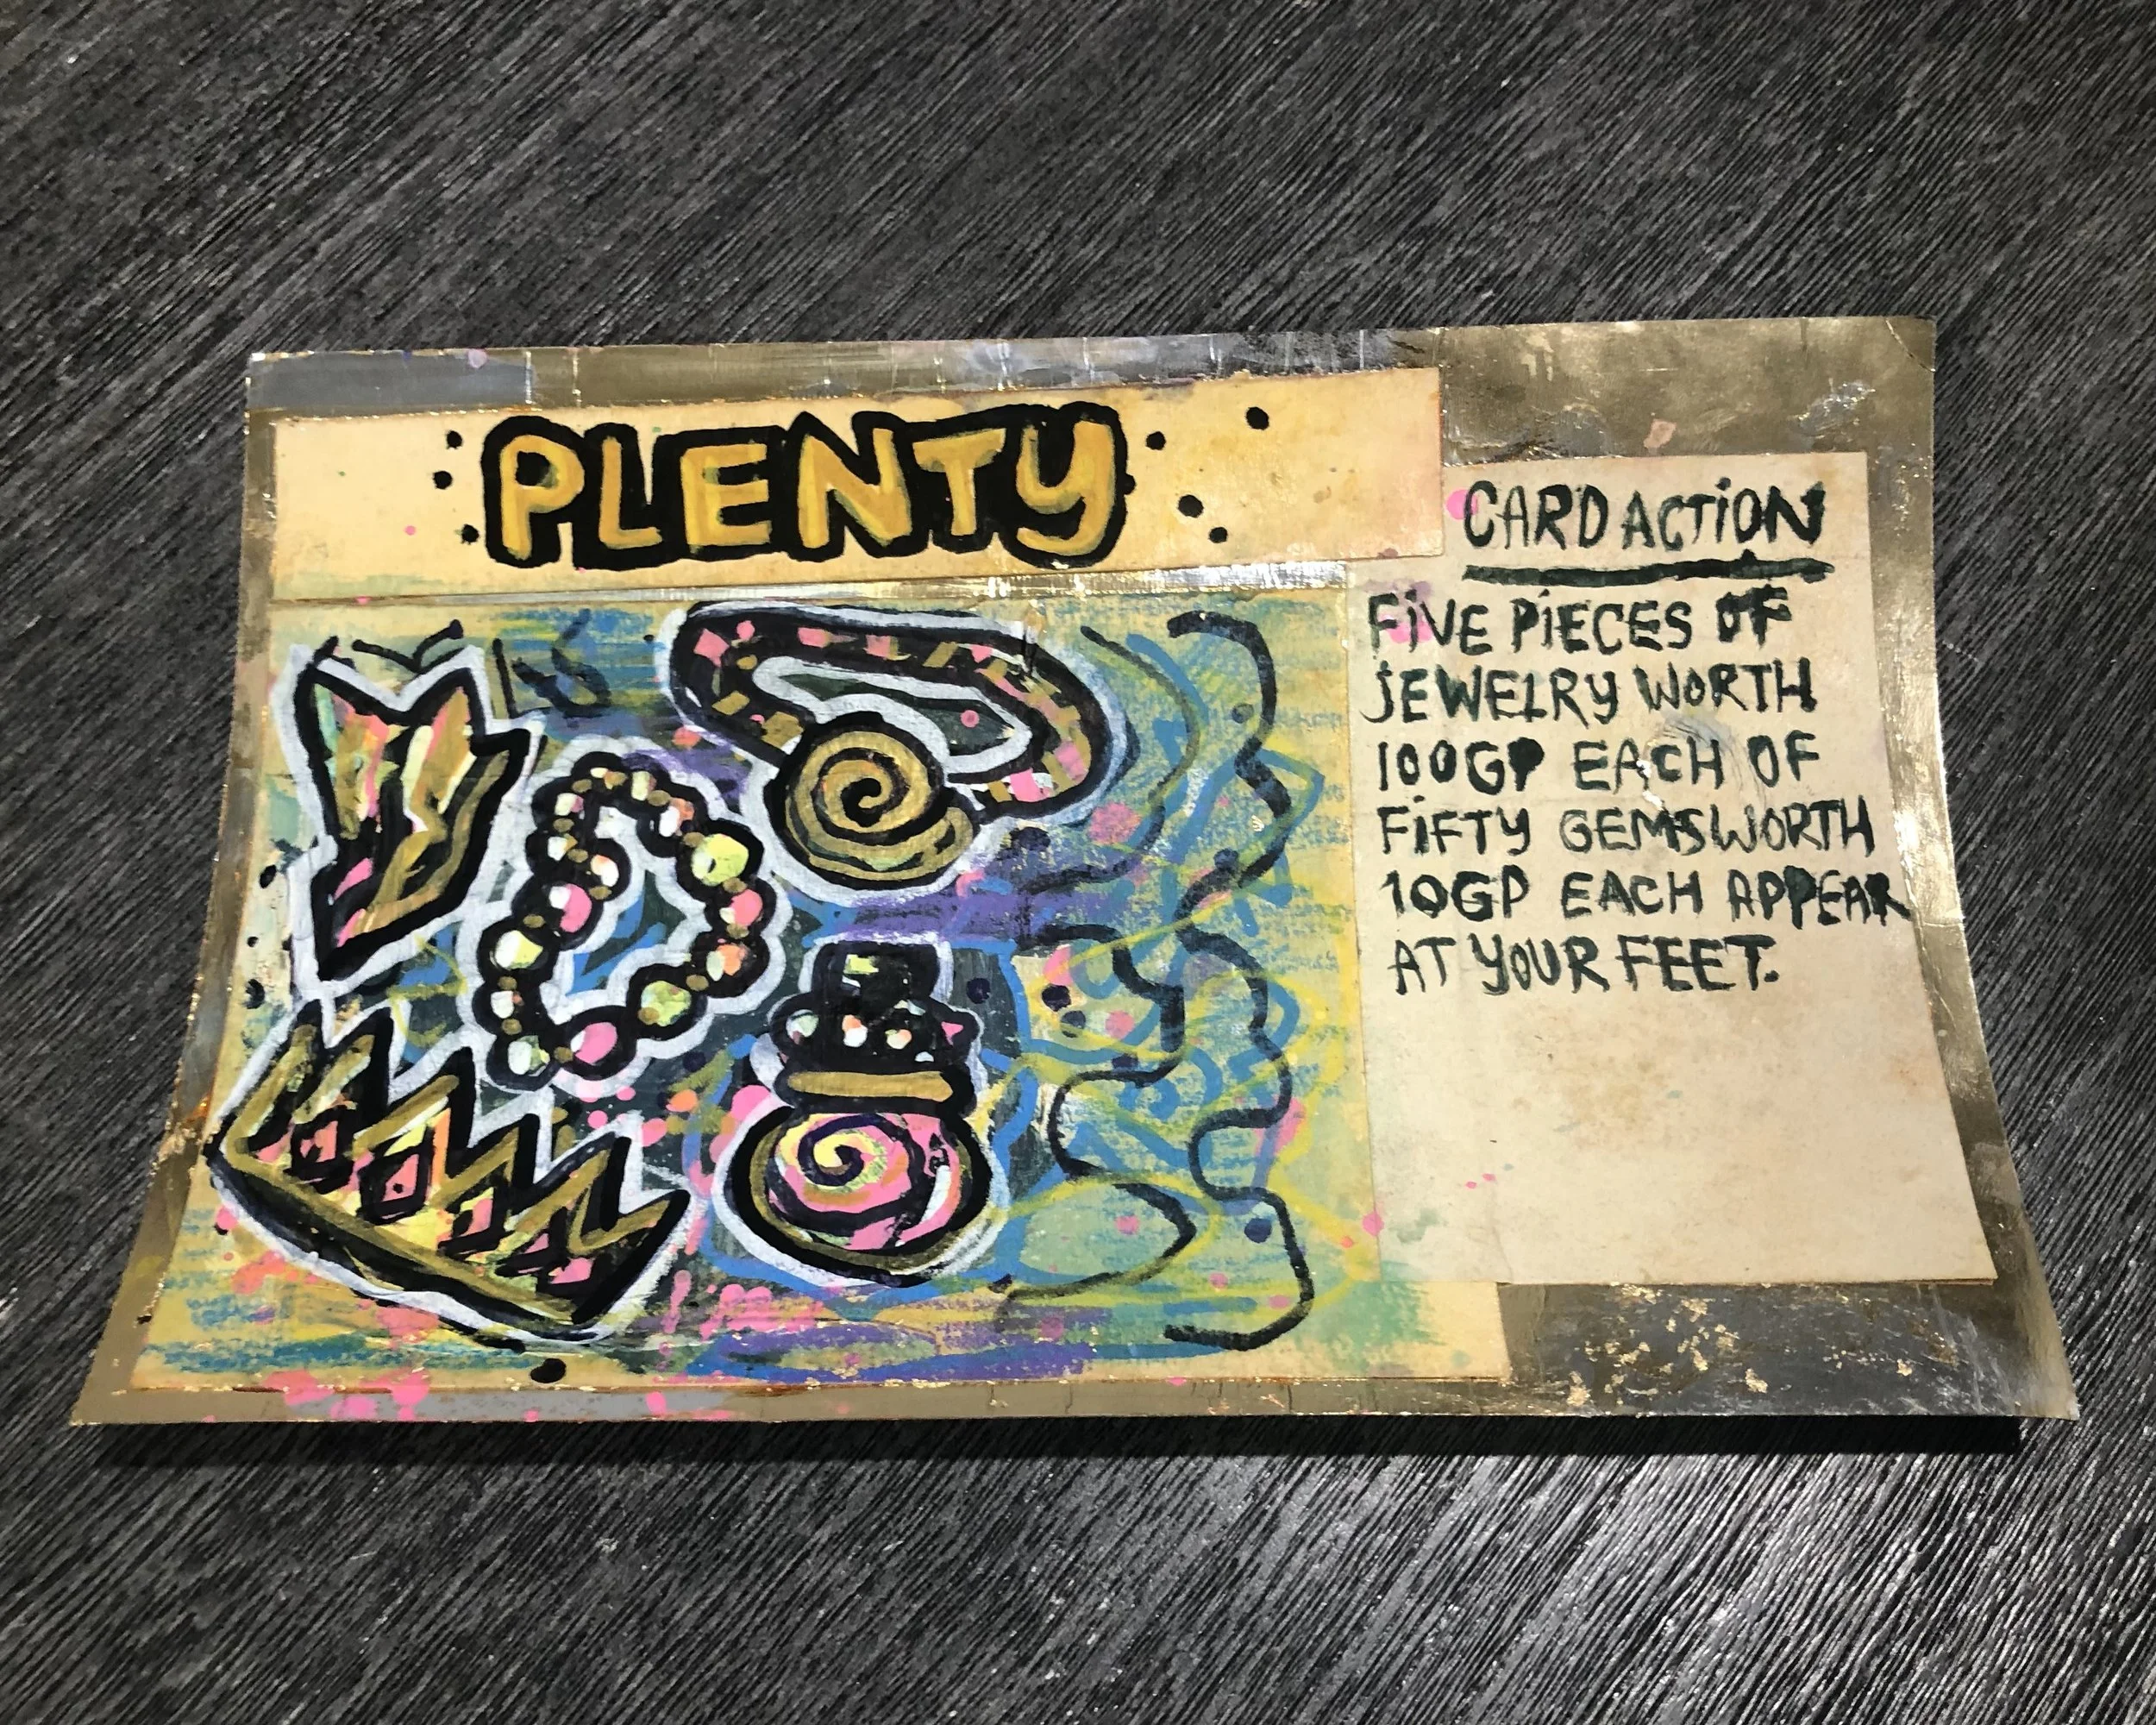 PLENTY
CARD ACTION
FIVE PIECES OF
JEWELRY WORTH
100GP EACH OF
FIFTY GEMS WORTH
10GP EACH APPEAR
AT YOUR FEET.